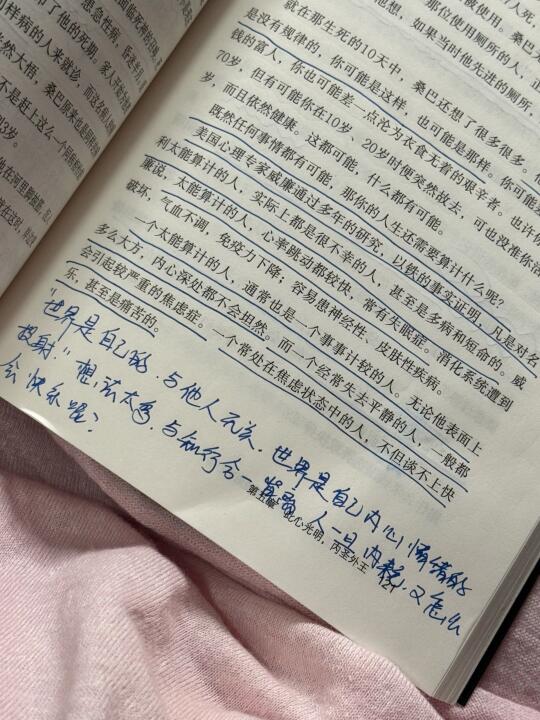 被使用。桑巴
那位使用厕所的人，正
他想，如果当时他先进的厕所，
就在那生死的10天中，桑巴还想了很多很多。
是没有规律的，你可能是这样，也可能是那样。你可能
钱的富人，你也可能差一点沦为衣食无着的艰辛者。也许你
70岁，但有可能你在10岁、20岁时便突然故去，可也没准你活
岁，而且依然健康。这都可能，什么都有可能。
既然任何事情都有可能，那你的人生还需要算计什么呢？
美国心理专家威廉通过多年的研究，以铁的事实证明，凡是对名
利太能算计的人，实际上都是很不幸的人，甚至是多病和短命的。威
廉说，太能算计的人，心率跳动都较快，常有失眠症。消化系统遭到
破坏，气血不调，免疫力下降；容易患神经性、皮肤性疾病。
一个太能算计的人，通常也是一个事事计较的人。无论他表面上
多么大方，内心深处都不会坦然。而一个经常失去平静的人，一般都
会引起较严重的焦虑症。一个常处在焦虑状态中的人，不但谈不上快
乐，甚至是痛苦的。
"世界是自己的，与他人无关，世界是自己内心情绪的
投射。"想法太多，与知行合一 人一旦内耗，又怎么
会快乐呢？
此心光明，内圣外王
面临死神的召唤
了他的死期。家人
样病的人来就诊，而这名病人
然大悟，桑巴原来也
不是赶上这么一个
43岁。